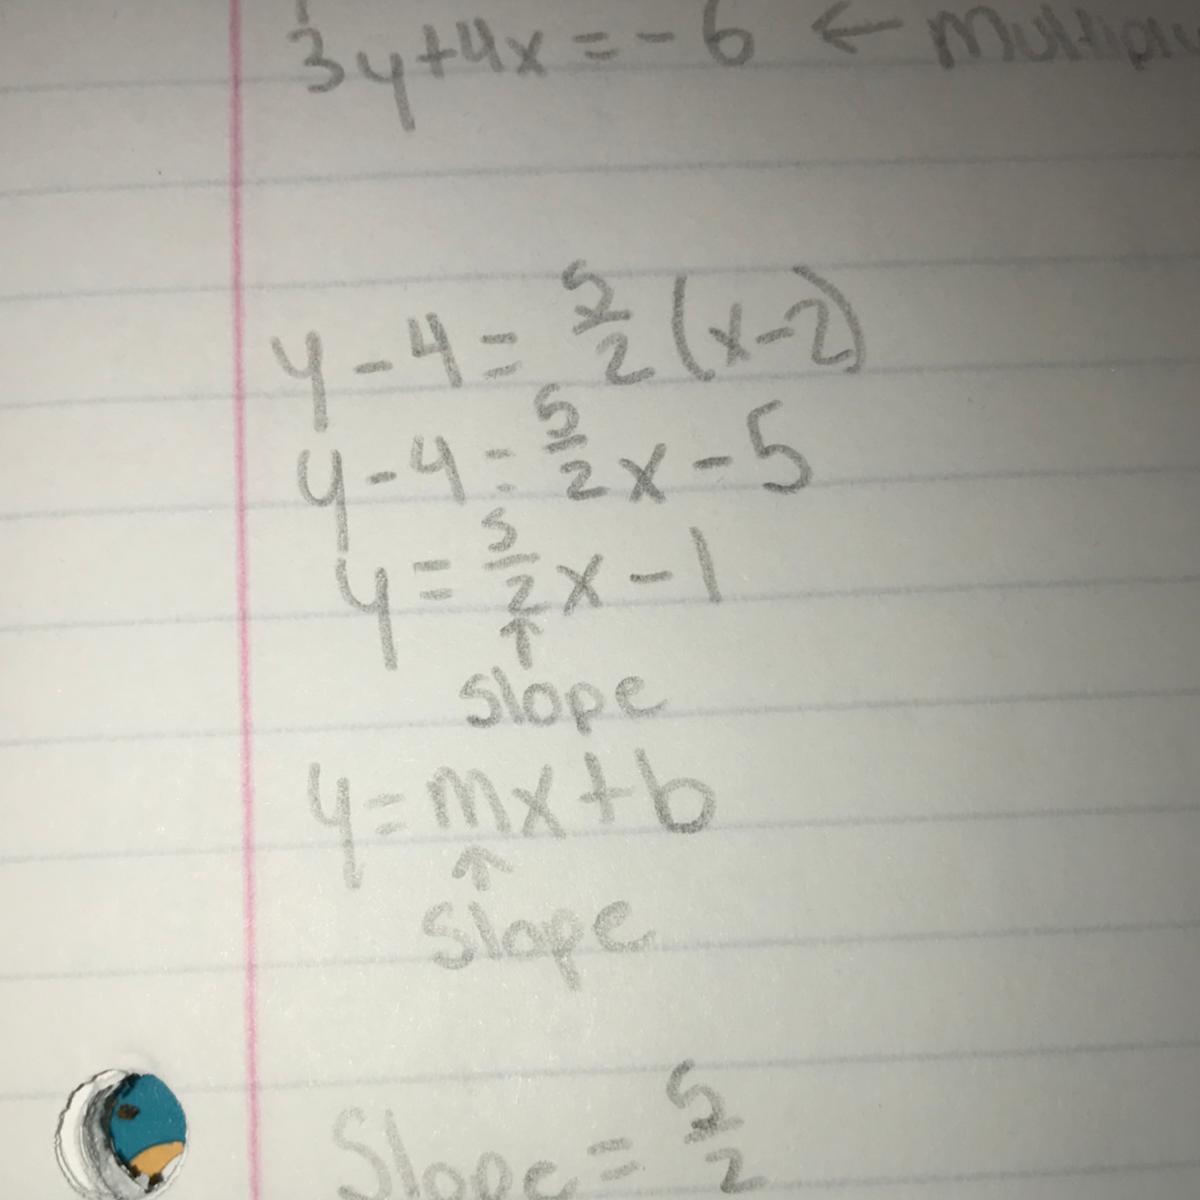 3y+4x=-6 ← Multiply
y-4=5/2(x-2)
y-4=5/2x-5
y=5/2x-1
↑
slope
y=mx+b
↑
slope
Slope=5/2